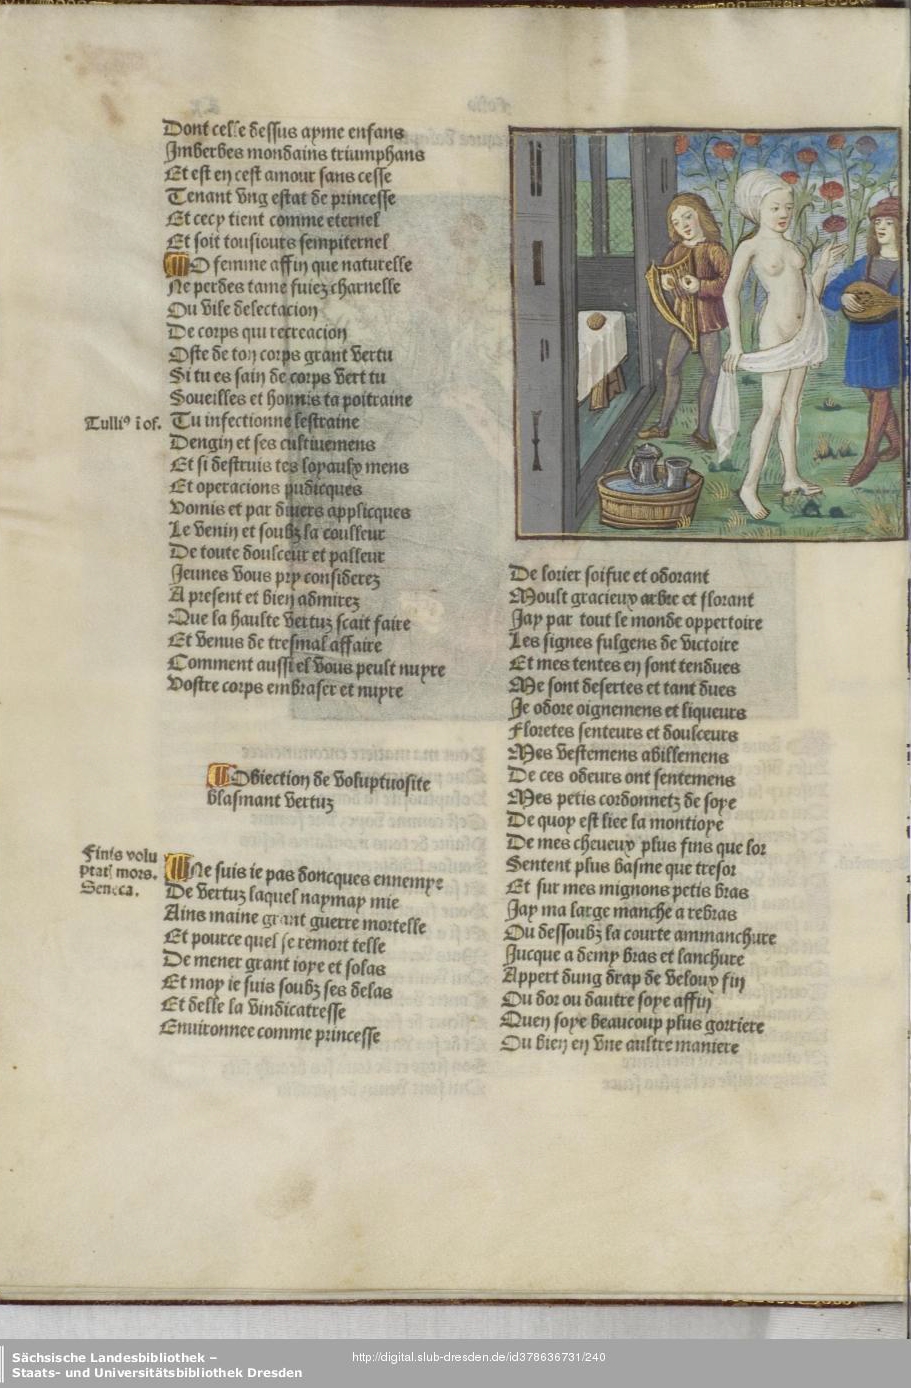 Dont celle dessus ayme enfans
Imberbes mondains triumphans
Et est en cest amour sans cesse
Tenant vng estat de princesse
Et cecy tient comme eternel
Et soit tousiours sempiternel
O femme affin que naturelle
Ne perdes tame fuiez charnelle
Ou vile delectacion
De corps qui recreacion
Oste de ton corps grant vertu
Si tu es sain de corps vert tu
Soueilles et honnis ta poitraine
Tulli⁹ i of.
Tu infectionne lestraine
Dengin et ses cultiuemens
Et si destruis tes loyaulx mens
Et operacions pudicques
Vomis et par diuers applicques
Le venin et soubz la coulleur
De toute doulceur et palleur
Jeunes vous pry considerez
A present et bien admirez
Que la haulte vertuz scait faire
Et venus de tresmal affaire
Comment aussi el vous peult nuyre
Vostre corps embraser et nuyre
Obiection de voluptuosite
blasmant vertuz
Finis volu
ptat⁹ mors.
Seneca.
Ne suis ie pas doncques ennemye
De vertuz laquel naymay mie
Ains maine grant guerre mortelle
Et pource quel se remort telle
De mener grant ioye et solas
Et moy ie suis soubz ses delas
Et delle la vindicatresse
Enuironnee comme princesse
De lorier soifue et odorant
Moult gracieux arbre et florant
Jay par tout le monde oppertoire
Les signes fulgens de victoire
Et mes tentes en sont tendues
Me sont desertes et tant dues
Je odore oignemens et liqueurs
Floretes senteurs et doulceurs
Mes vestemens abillemens
De ces odeurs ont sentemens
Mes petis cordonnetz de soye
De quoy est liee la montioye
De mes cheueux plus fins que lor
Sentent plus basme que tresor
Et sur mes mignons petis bras
Jay ma large manche a rebras
Ou dessoubz la courte ammanchure
Jucque a demy bras et lanchure
Appert dung drap de veloux fin
Ou dor ou dautre soye affin
Quen soye beaucoup plus gorriere
Ou bien en vne aultre maniere
Sächsische Landesbibliothek –
Staats- und Universitätsbibliothek Dresden
http://digital.slub-dresden.de/id378636731/240